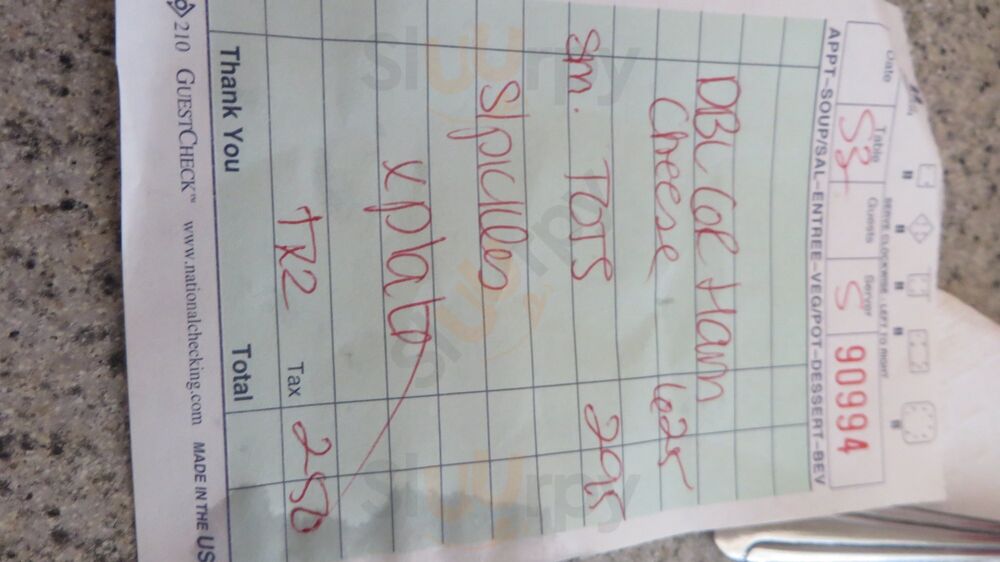 Date Table Guests Server
S3 S 909994
SERVE CLOCKWISE - LEFT TO RIGHT
APPT-SOUP/SAL-ENTREE-VEG/POT-DESSERT-BEV
DBL Ham
Cheese 625
Sm. TOTS 295
S/pickles
xplate
Tax 250
Thank You Total
210 GUESTCHECK™ www.nationalchecking.com MADE IN THE US
slurrpy
slurrpy
slurrpy
slurrpy